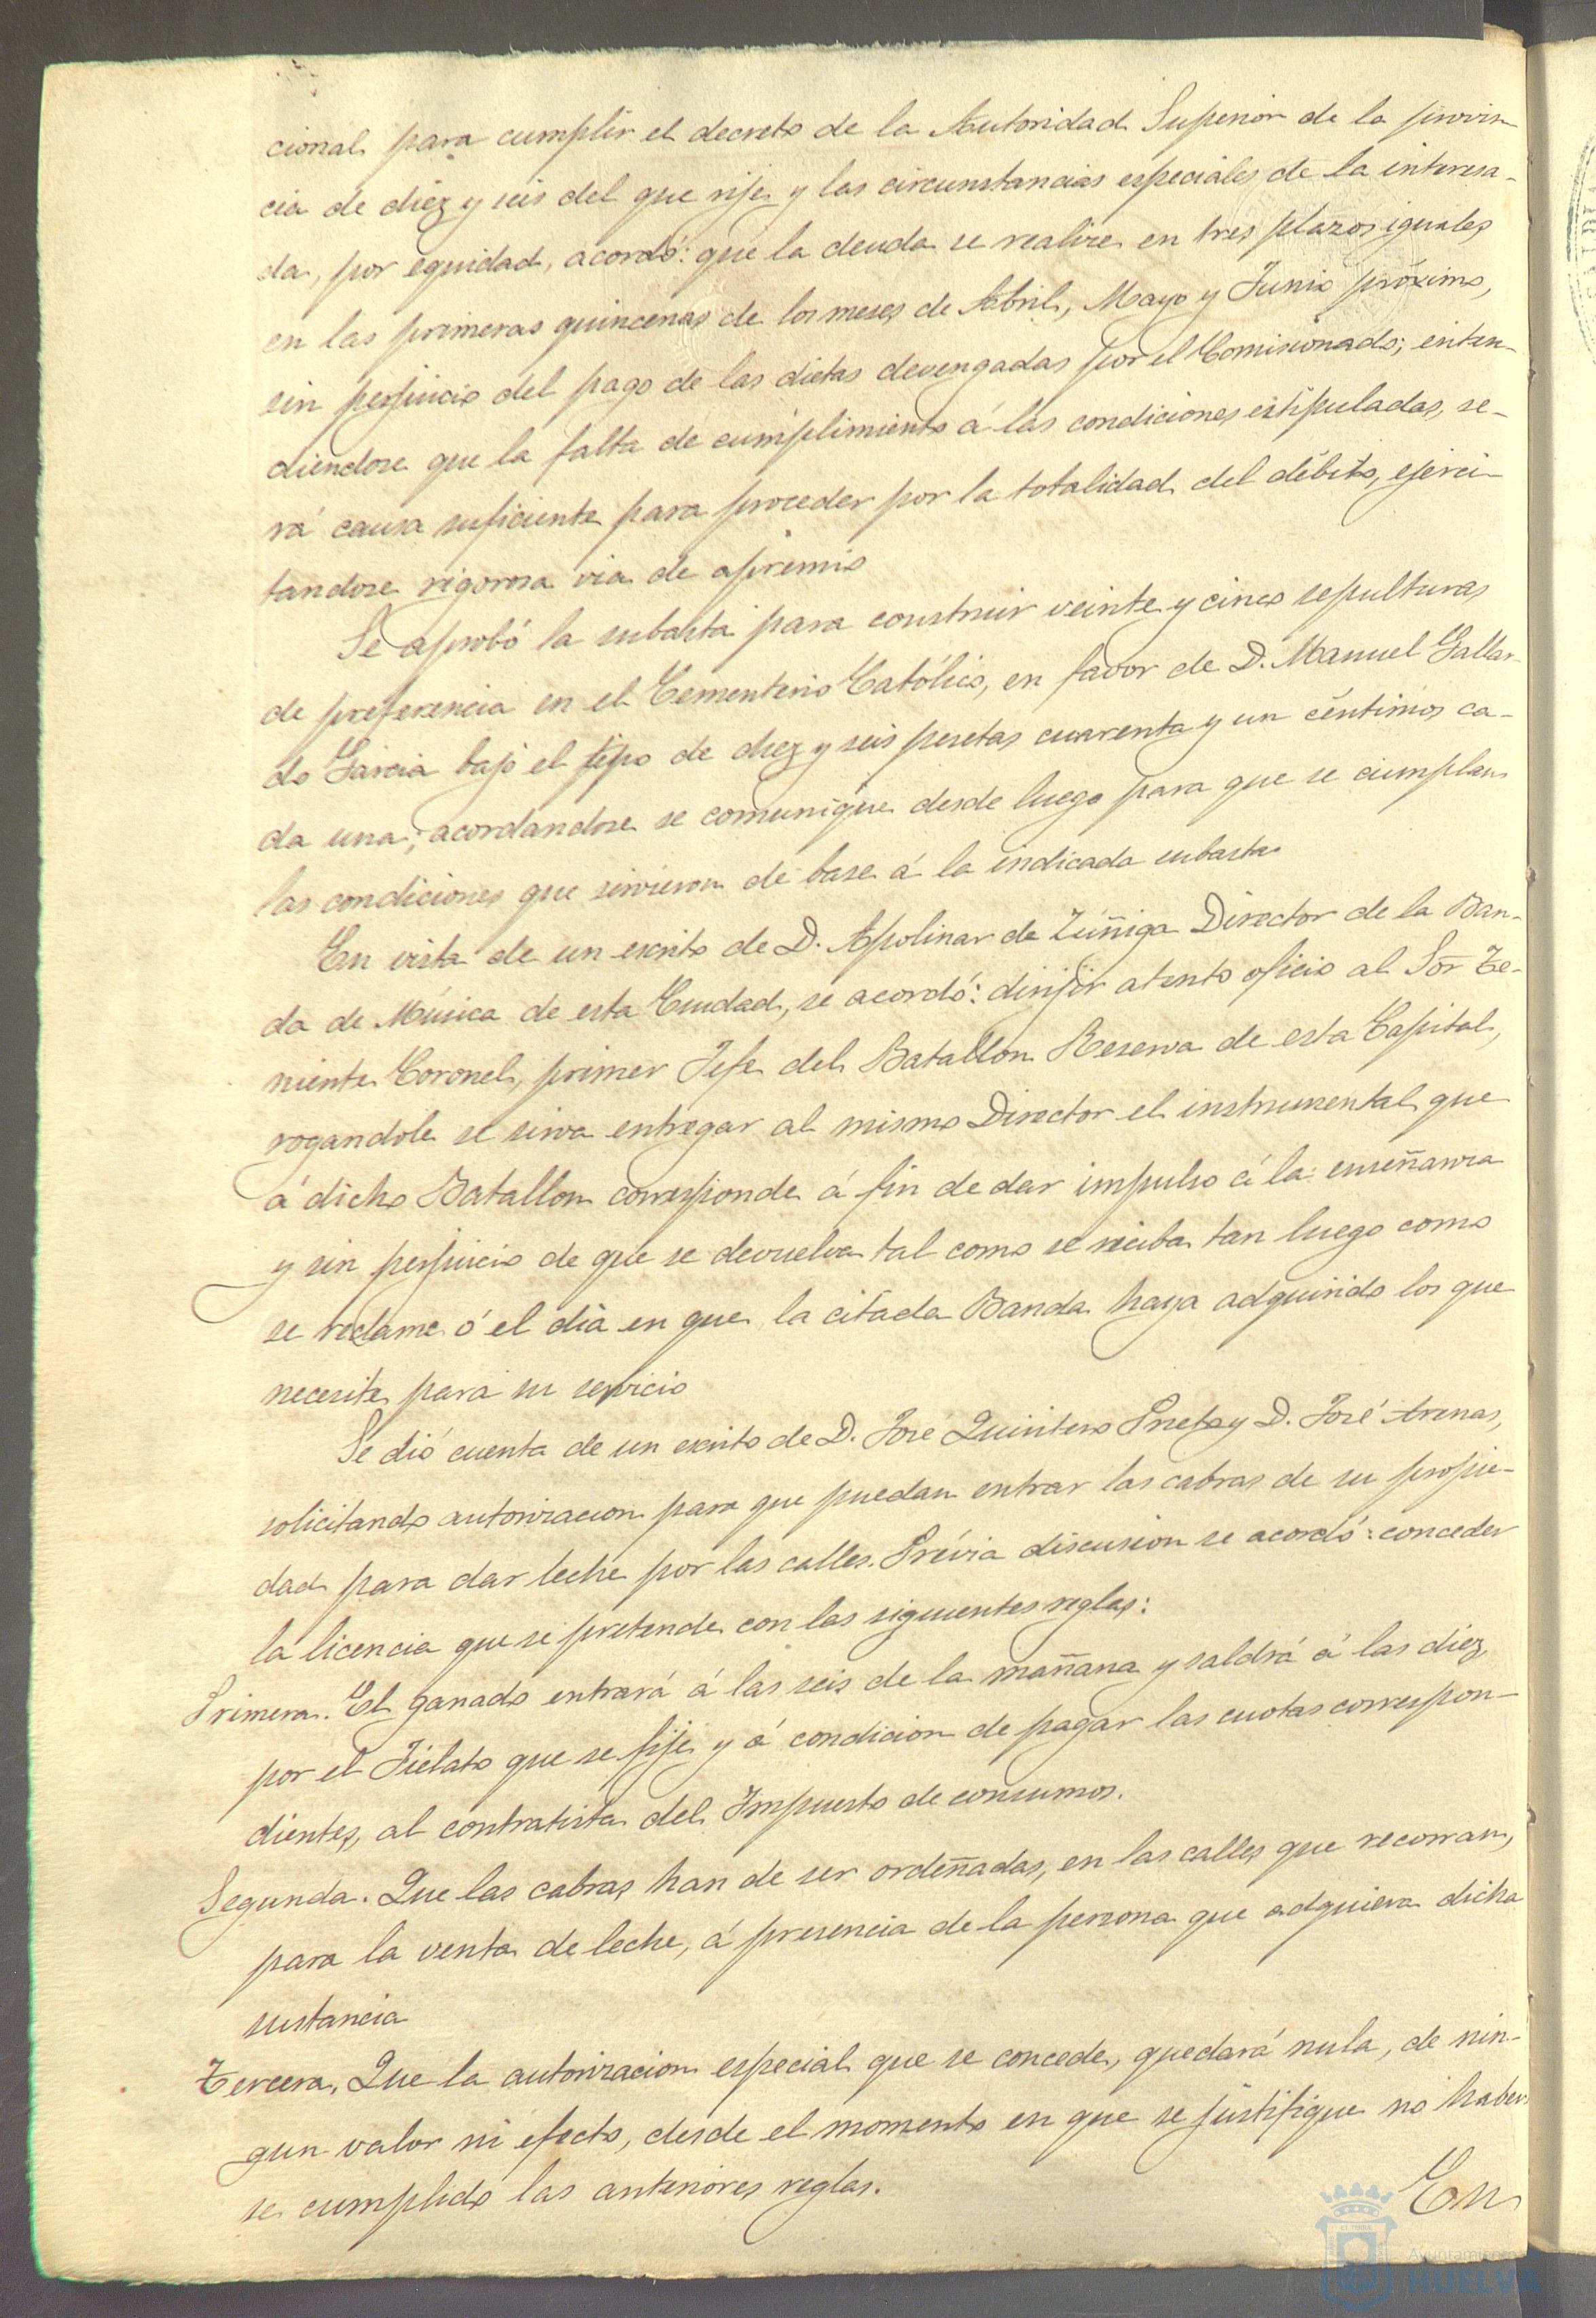 cional para cumplir el decreto de la Autoridad Superior de la provin
cia de diez y seis del que rije y las circunstancias especiales de la interesa-
da, por equidad, acordó: que la deuda se realize en tres plazos iguales
en las primeras quincenas de los meses de Abril, Mayo y Junio próximo,
sin perjuicio del pago de las dietas devengadas por el Comisionado; enten-
diendose que la falta de cumplimiento á las condiciones estipuladas, se-
rá causa suficiente para proceder por la totalidad del débito, ejerci-
tandose rigorosa via de apremio
Se aprobó la subasta para construir veinte y cinco sepulturas
de preferencia en el Cementerio Católico, en favor de D. Manuel Gallar-
do Garcia bajo el tipo de diez y seis pesetas cuarenta y un céntimos ca-
da una; acordandose se comunique desde luego para que se cumplan
las condiciones que sirvieron de base á la indicada subasta
En vista de un escrito de D. Apolinar de Zúñiga Director de la Ban-
da de Música de esta Ciudad, se acordó: dirijir atento oficio al Sor Te-
niente Coronel, primer Jefe del Batallon Reserva de esta Capital,
rogandole se sirva entregar al mismo Director el instrumental que
á dicho Batallon corresponde á fin de dar impulso á la enseñanza
y sin perjuicio de que se devuelva tal como se reciba tan luego como
se reclame ó el dia en que la citada Banda haya adquirido los que
necesite para su servicio
Se dió cuenta de un escrito de D. José Quintero Prieto y D. José Arenas,
solicitando autorizacion para que puedan entrar las cabras de su propie-
dad para dar leche por las calles. Prévia discusion se acordó: conceder
la licencia que se pretende con las siguientes reglas:
Primera. El ganado entrará á las seis de la mañana y saldrá á las diez,
por el Fielato que se fije y á condicion de pagar las cuotas correspon-
dientes, al contratista del Impuesto de consumos.
Segunda. Que las cabras han de ser ordeñadas, en las calles que recorran,
para la venta de leche, á presencia de la persona que adquiera dicha
sustancia
Tercera. Que la autorizacion especial que se concede, quedará nula, de nin-
gun valor ni efecto, desde el momento en que se justifique no haber
se cumplido las anteriores reglas.
En
Ayuntamiento
HUELVA